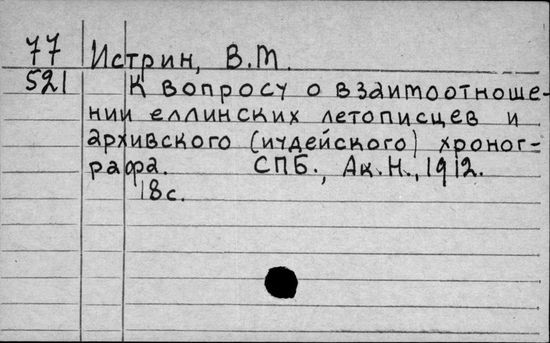 77 Истрин, В.М.
521 К вопросу о взаимоотноше-
нии еллинских летописцев и
архивского (иудейского) хроног-
рафа. СПБ., Ак.Н., 1912.
18с.